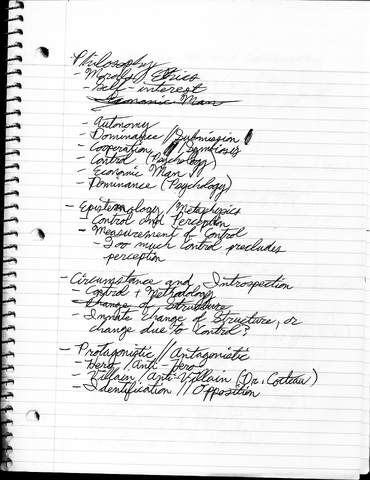 Philosophy
- Morals / Ethics
- Self-interest
- Economic Man
- Autonomy
- Dominance // Submission
- Cooperation // Symbiosis
- Control (Psychology)
- Economic Man
- Dominance (Psychology)
- Epistemology / Metaphysics
- Control and Perception
- Measurement of Control
- Too much control precludes
perception
- Circumstance and Introspection
- Control +
- Change of Structure
- Innate change of Structure, or
change due to control?
- Protagonistic // Antagonistic
- Hero / Anti-Hero
- Villain / Anti-Villain (Dr. Cocteau)
- Identification // Opposition